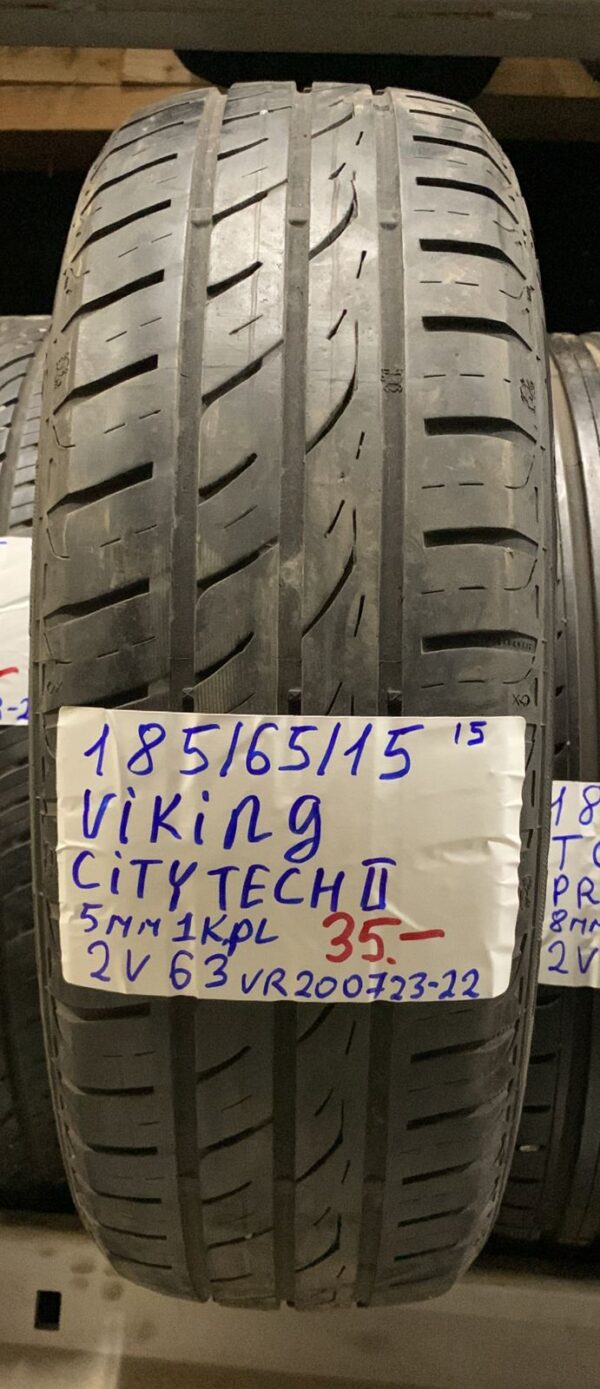 185/65/15 15
Viking
CiTY TECH II
5mm 1KPL 35.-
2V 63 VR200723-22
18
PR
8mm
2V